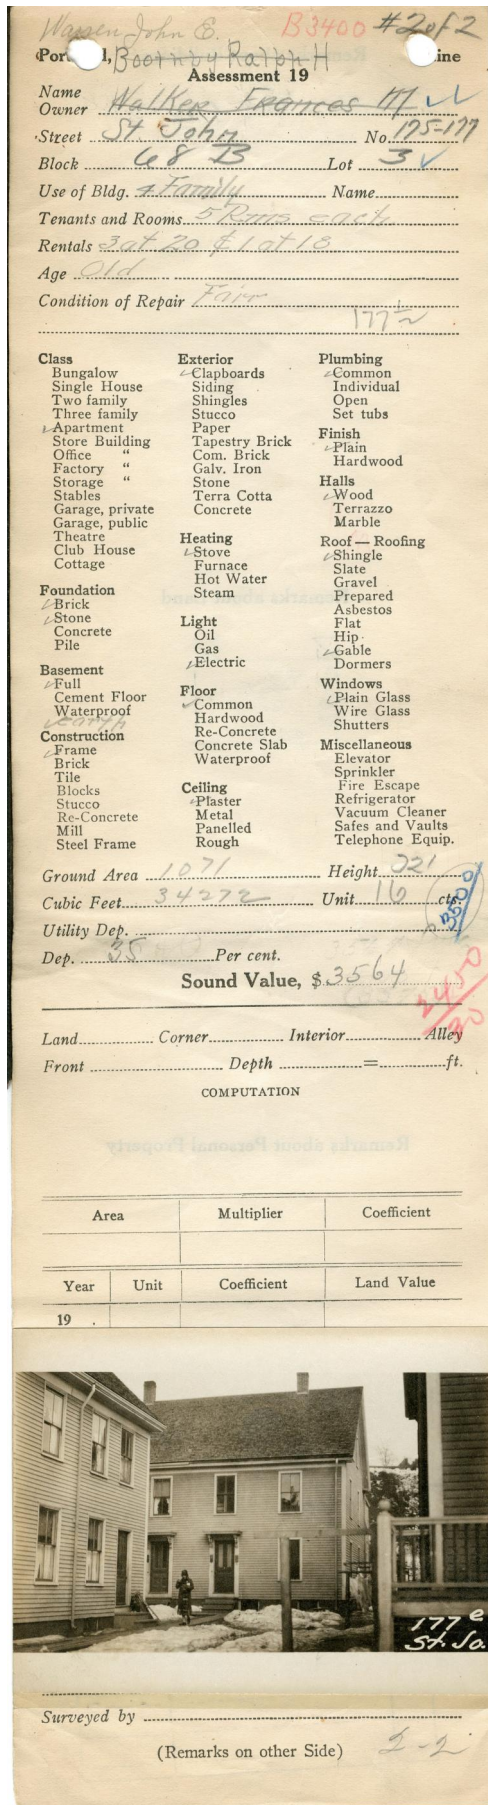 Warren, John E. B3400 #2 of 2
Portland, Boothby Ralph H ine
Assessment 19
Name
Owner Walker Frances M
Street St. John No. 175-177
Block 68 B Lot 3
Use of Bldg. 4 Family Name
Tenants and Rooms 5 Rms each
Rentals 3 at 20 & 1 at 18
Age Old
Condition of Repair Fair
177 1/2
Class
Bungalow
Single House
Two family
Three family
Apartment
Store Building
Office "
Factory "
Storage "
Stables
Garage, private
Garage, public
Theatre
Club House
Cottage
Foundation
Brick
Stone
Concrete
Pile
Basement
Full
Cement Floor
Waterproof
earth
Construction
Frame
Brick
Tile
Blocks
Stucco
Re-Concrete
Mill
Steel Frame
Exterior
Clapboards
Siding
Shingles
Stucco
Paper
Tapestry Brick
Com. Brick
Galv. Iron
Stone
Terra Cotta
Concrete
Heating
Stove
Furnace
Hot Water
Steam
Light
Oil
Gas
Electric
Floor
Common
Hardwood
Re-Concrete
Concrete Slab
Waterproof
Ceiling
Plaster
Metal
Panelled
Rough
Plumbing
Common
Individual
Open
Set tubs
Finish
Plain
Hardwood
Halls
Wood
Terrazzo
Marble
Roof — Roofing
Shingle
Slate
Gravel
Prepared
Asbestos
Flat
Hip
Gable
Dormers
Windows
Plain Glass
Wire Glass
Shutters
Miscellaneous
Elevator
Sprinkler
Fire Escape
Refrigerator
Vacuum Cleaner
Safes and Vaults
Telephone Equip.
Ground Area 1071 Height 32'
Cubic Feet 34272 Unit 16 cts.
3500
Utility Dep.
Dep. 35 Per cent.
Sound Value, $ 3564
2450/30
Land Corner Interior Alley
Front Depth = ft.
COMPUTATION
Remarks about Personal Property
Area Multiplier Coefficient
Year Unit Coefficient Land Value
19 .
177 e
St. Jo.
Surveyed by
(Remarks on other Side) 2-2